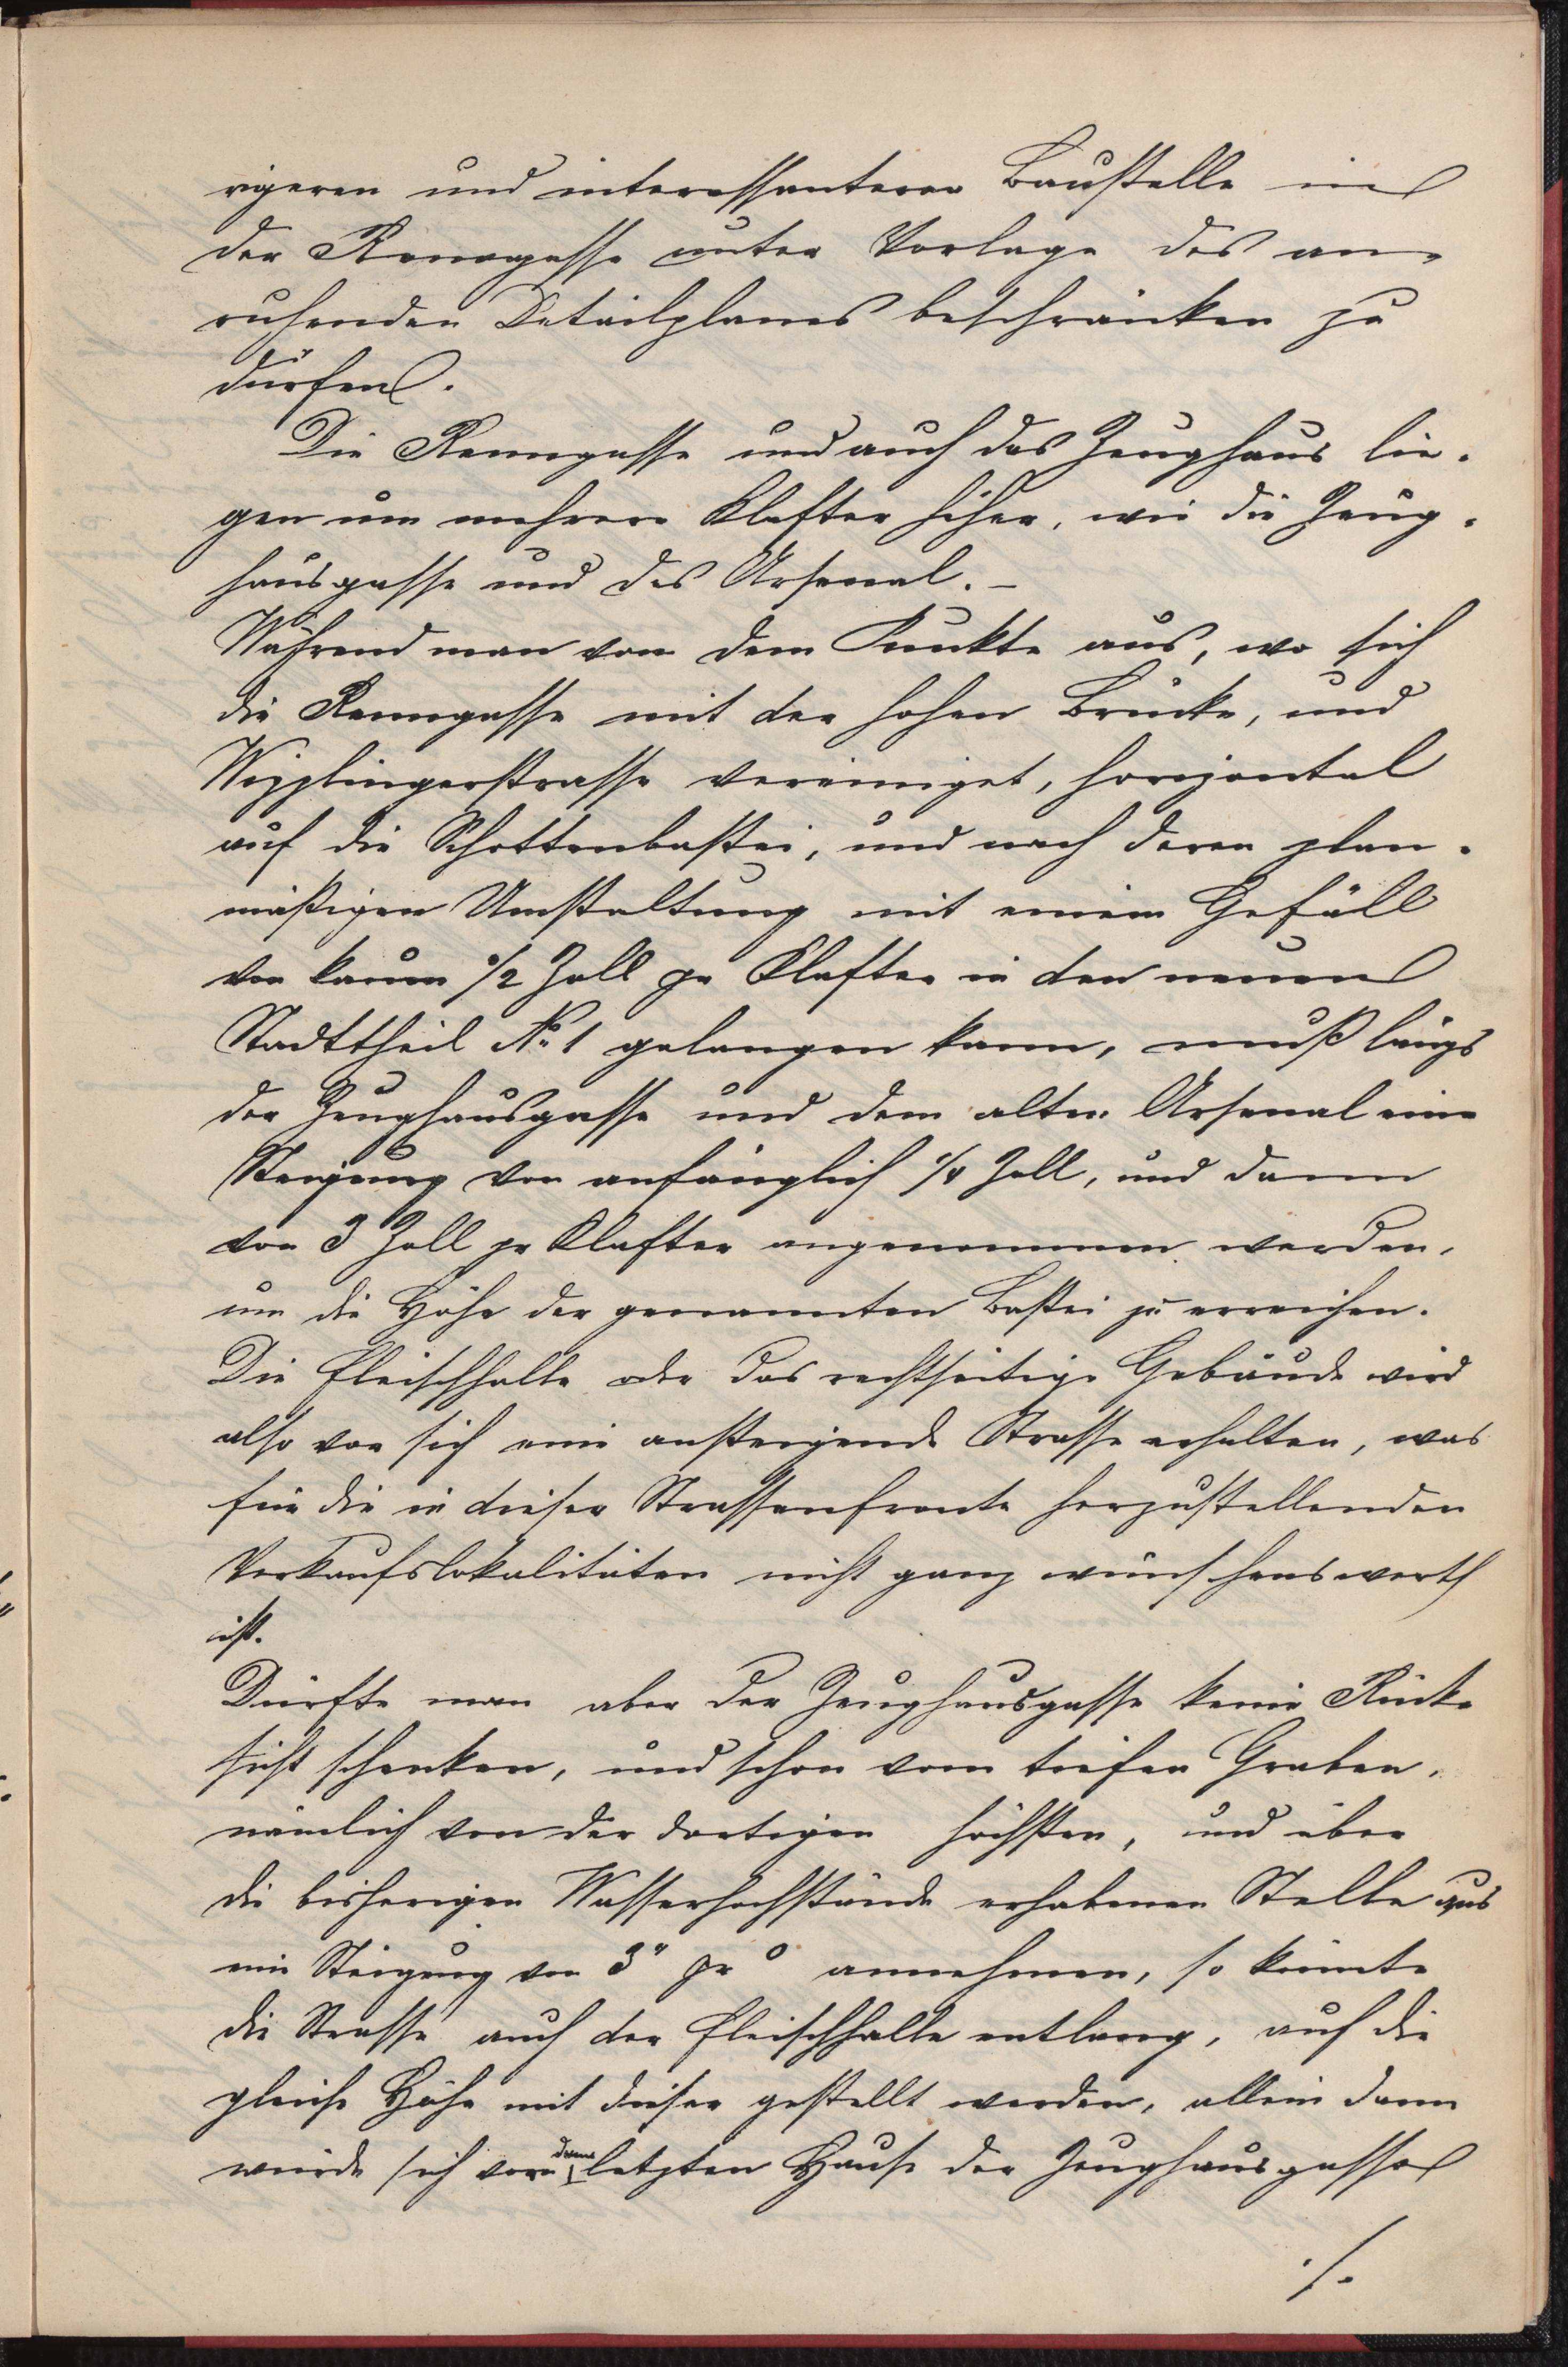 rigeren und interessanteren Baustelle in
der Renngasse unter Vorlage des an-
ruhenden Detailplanes beschränken zu
dürfen.
Die Renngasse und auch das Zeughaus lie-
gen um mehrere Klafter höher, wie die Zeug-
hausgasse und das Arsenal. -
Während man von dem Punkte aus, wo sich
die Renngasse mit der hohen Brücke, und
Wipplingerstrasse vereiniget, horizontal
auf die Schottenbastei, und nach deren plan-
mäßigen Umstaltung mit einem Gefäll
von kaum 1/2 Zoll pr Klafter in den neuen
Stadttheil No 1 gelangen kann, muß längs
der Zeughausgasse und dem alten Arsenal eine
Steigung von anfänglich 1/4 Zoll, und dann
von 3 Zoll pr Klafter angenommen werden,
um die Höhe der genannten Bastei zu erreichen.
Die Fleischhalle oder das rechtseitige Gebäude wird
also vor sich eine ansteigende Strasse erhalten, was
für die in dieser Strassenfronte herzustellenden
Verkaufslokalitäten nicht ganz wünschenswerth
ist.
Dürfte man aber der Zeughausgasse keine Rück-
sicht schenken, und schon vom tiefen Graben,
nämlich von der dortigen höchsten, und über
die bisherigen Wasserhochstände erhabenen Stelle aus
eine Steigung von 3" pr ° annehmen, so könnte
die Strasse auch der Fleischhalle entlang, auf die
gleiche Höhe mit dieser gestellt werden, allein dann
würde sich vor dem letzten Hause der Zeughausgasse
./.